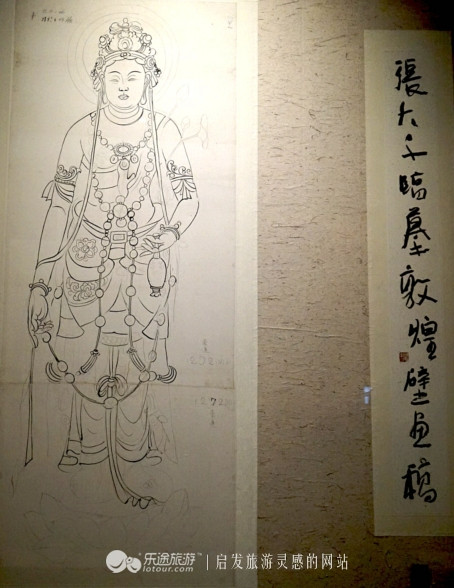 張大千臨摹敦煌壁画稿
乐途旅游®
lotour.com
启发旅游灵感的网站